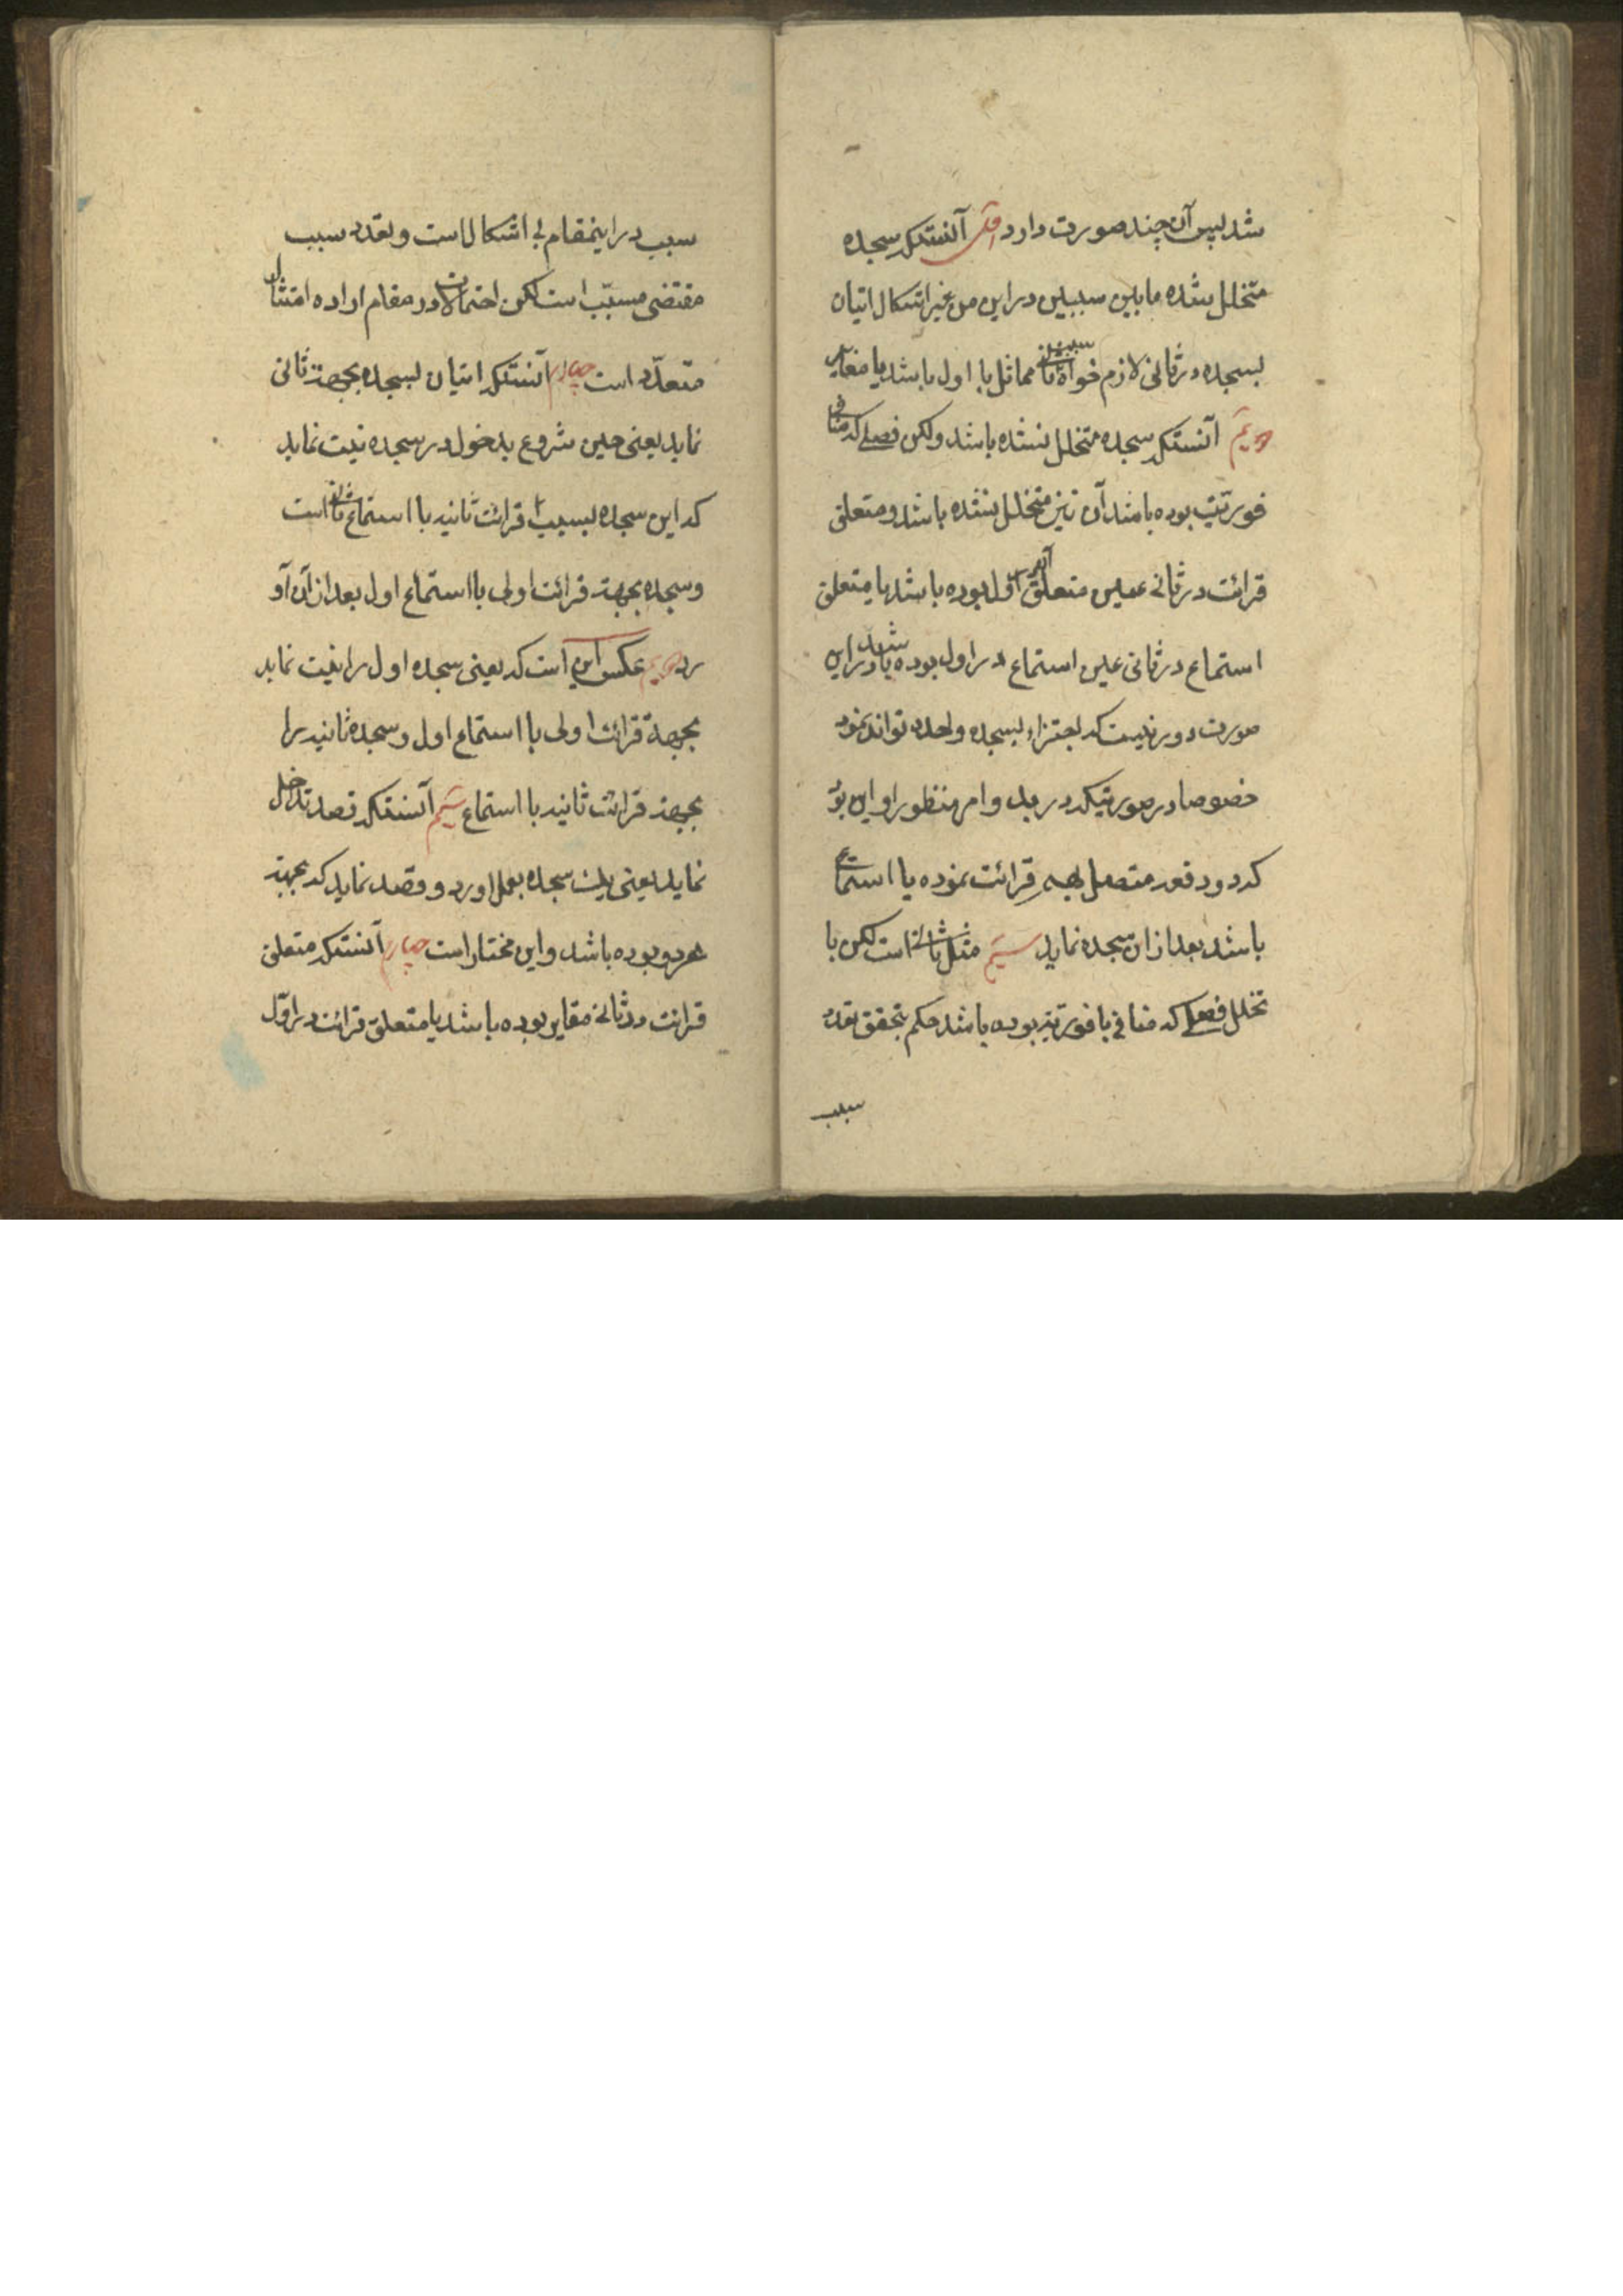 شد پس آن چند صورت دارد اول آنستکه سجده
متخلل شده مابین سببین در این من غیر اشکال اتیان
بسجده در ثانی لازم خواه سبب ثانی مماثل با اول باشد یا مغایر
دویم آنستکه سجده متخلل نشده باشد ولکن فصلی که منافی
فوریت بوده باشد آن نیز متخلل نشده باشد و متعلق
قرائت در ثانی عین متعلق اول بوده باشد یا متعلق
استماع در ثانی عین استماع در اول بوده باشد در این
صورت دور نیست که اجتزاء بسجده واحده تواند نمود
خصوصا در صورتیکه در بدو امر منظور او این بود
که دو دفعه متصل بهم قرائت نموده یا استماع
باشد بعد از ان سجده نماید سیم مثل ثانی است لکن با
تخلل فصلی که منافی با فوریت بوده باشد حکم بتحقق تعدد
سبب
سبب در اینمقام بی اشکال است و تعدد سبب
مقتضی مسبب است لکن احتمالات در مقام اراده امتثال
متعدد است چهارم آنستکه اتیان بسجده بجهة ثانی
نماید یعنی حین شروع بدخول در سجده نیت نماید
که این سجده بسبب قرائت ثانیه یا استماع ثانی است
و سجده بجهة قرائت اولی یا استماع اول بعد از آن آو
رد دویم عکس این است که یعنی سجده اول را نیت نماید
بجهة قرائت اولی یا استماع اول و سجده ثانیه را
بجهة قرائت ثانیه یا استماع سیم آنستکه قصد تداخل
نماید یعنی یک سجده بعمل اورد و قصد نماید که بجهة
هر دو بوده باشد و این مختار است چهارم آنستکه متعلق
قرائت در ثانی مغایر بوده باشد با متعلق قرائت در اول